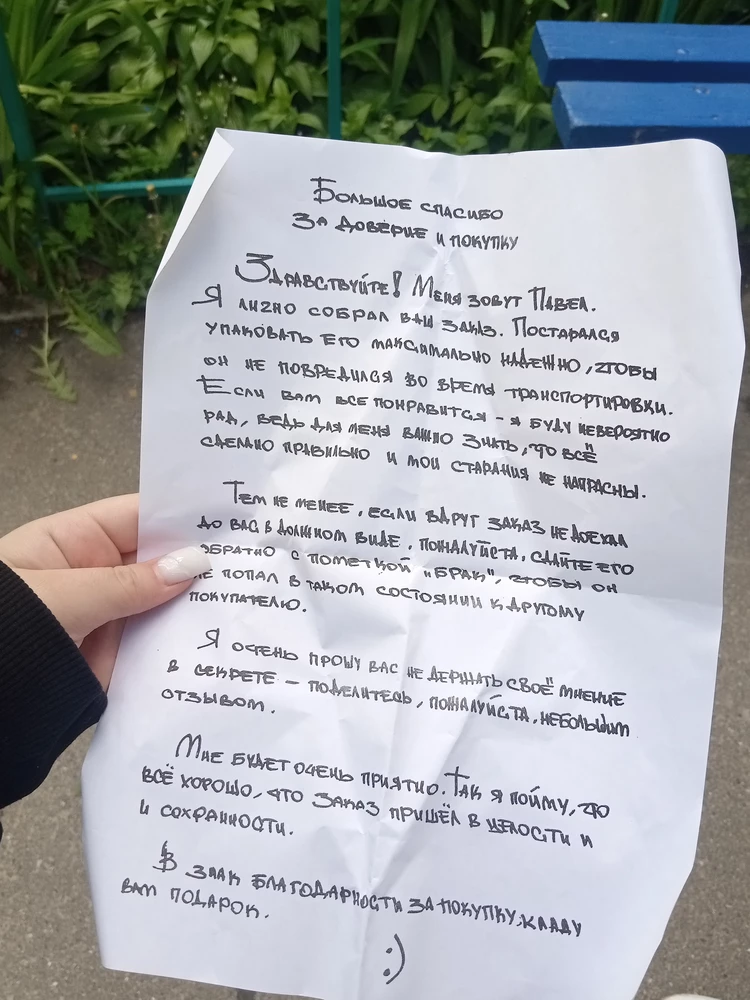 Большое спасибо
за доверие и покупку
Здравствуйте! Меня зовут Павел.
Я лично собрал ваш заказ. Постарался
упаковать его максимально надежно, чтобы
он не повредился во время транспортировки.
Если вам все понравится - я буду невероятно
рад, ведь для меня важно знать, что всё
сделано правильно и мои старания не напрасны.
Тем не менее, если вдруг заказ не доехал
до вас в должном виде, пожалуйста, сдайте его
обратно с пометкой "БРАК", чтобы он
не попал в таком состоянии к другому
покупателю.
Я очень прошу вас не держать своё мнение
в секрете - поделитесь, пожалуйста, небольшим
отзывом.
Мне будет очень приятно. Так я пойму, что
всё хорошо, что заказ пришёл в целости и
и сохранности.
В знак благодарности за покупку, кладу
вам подарок.
:)